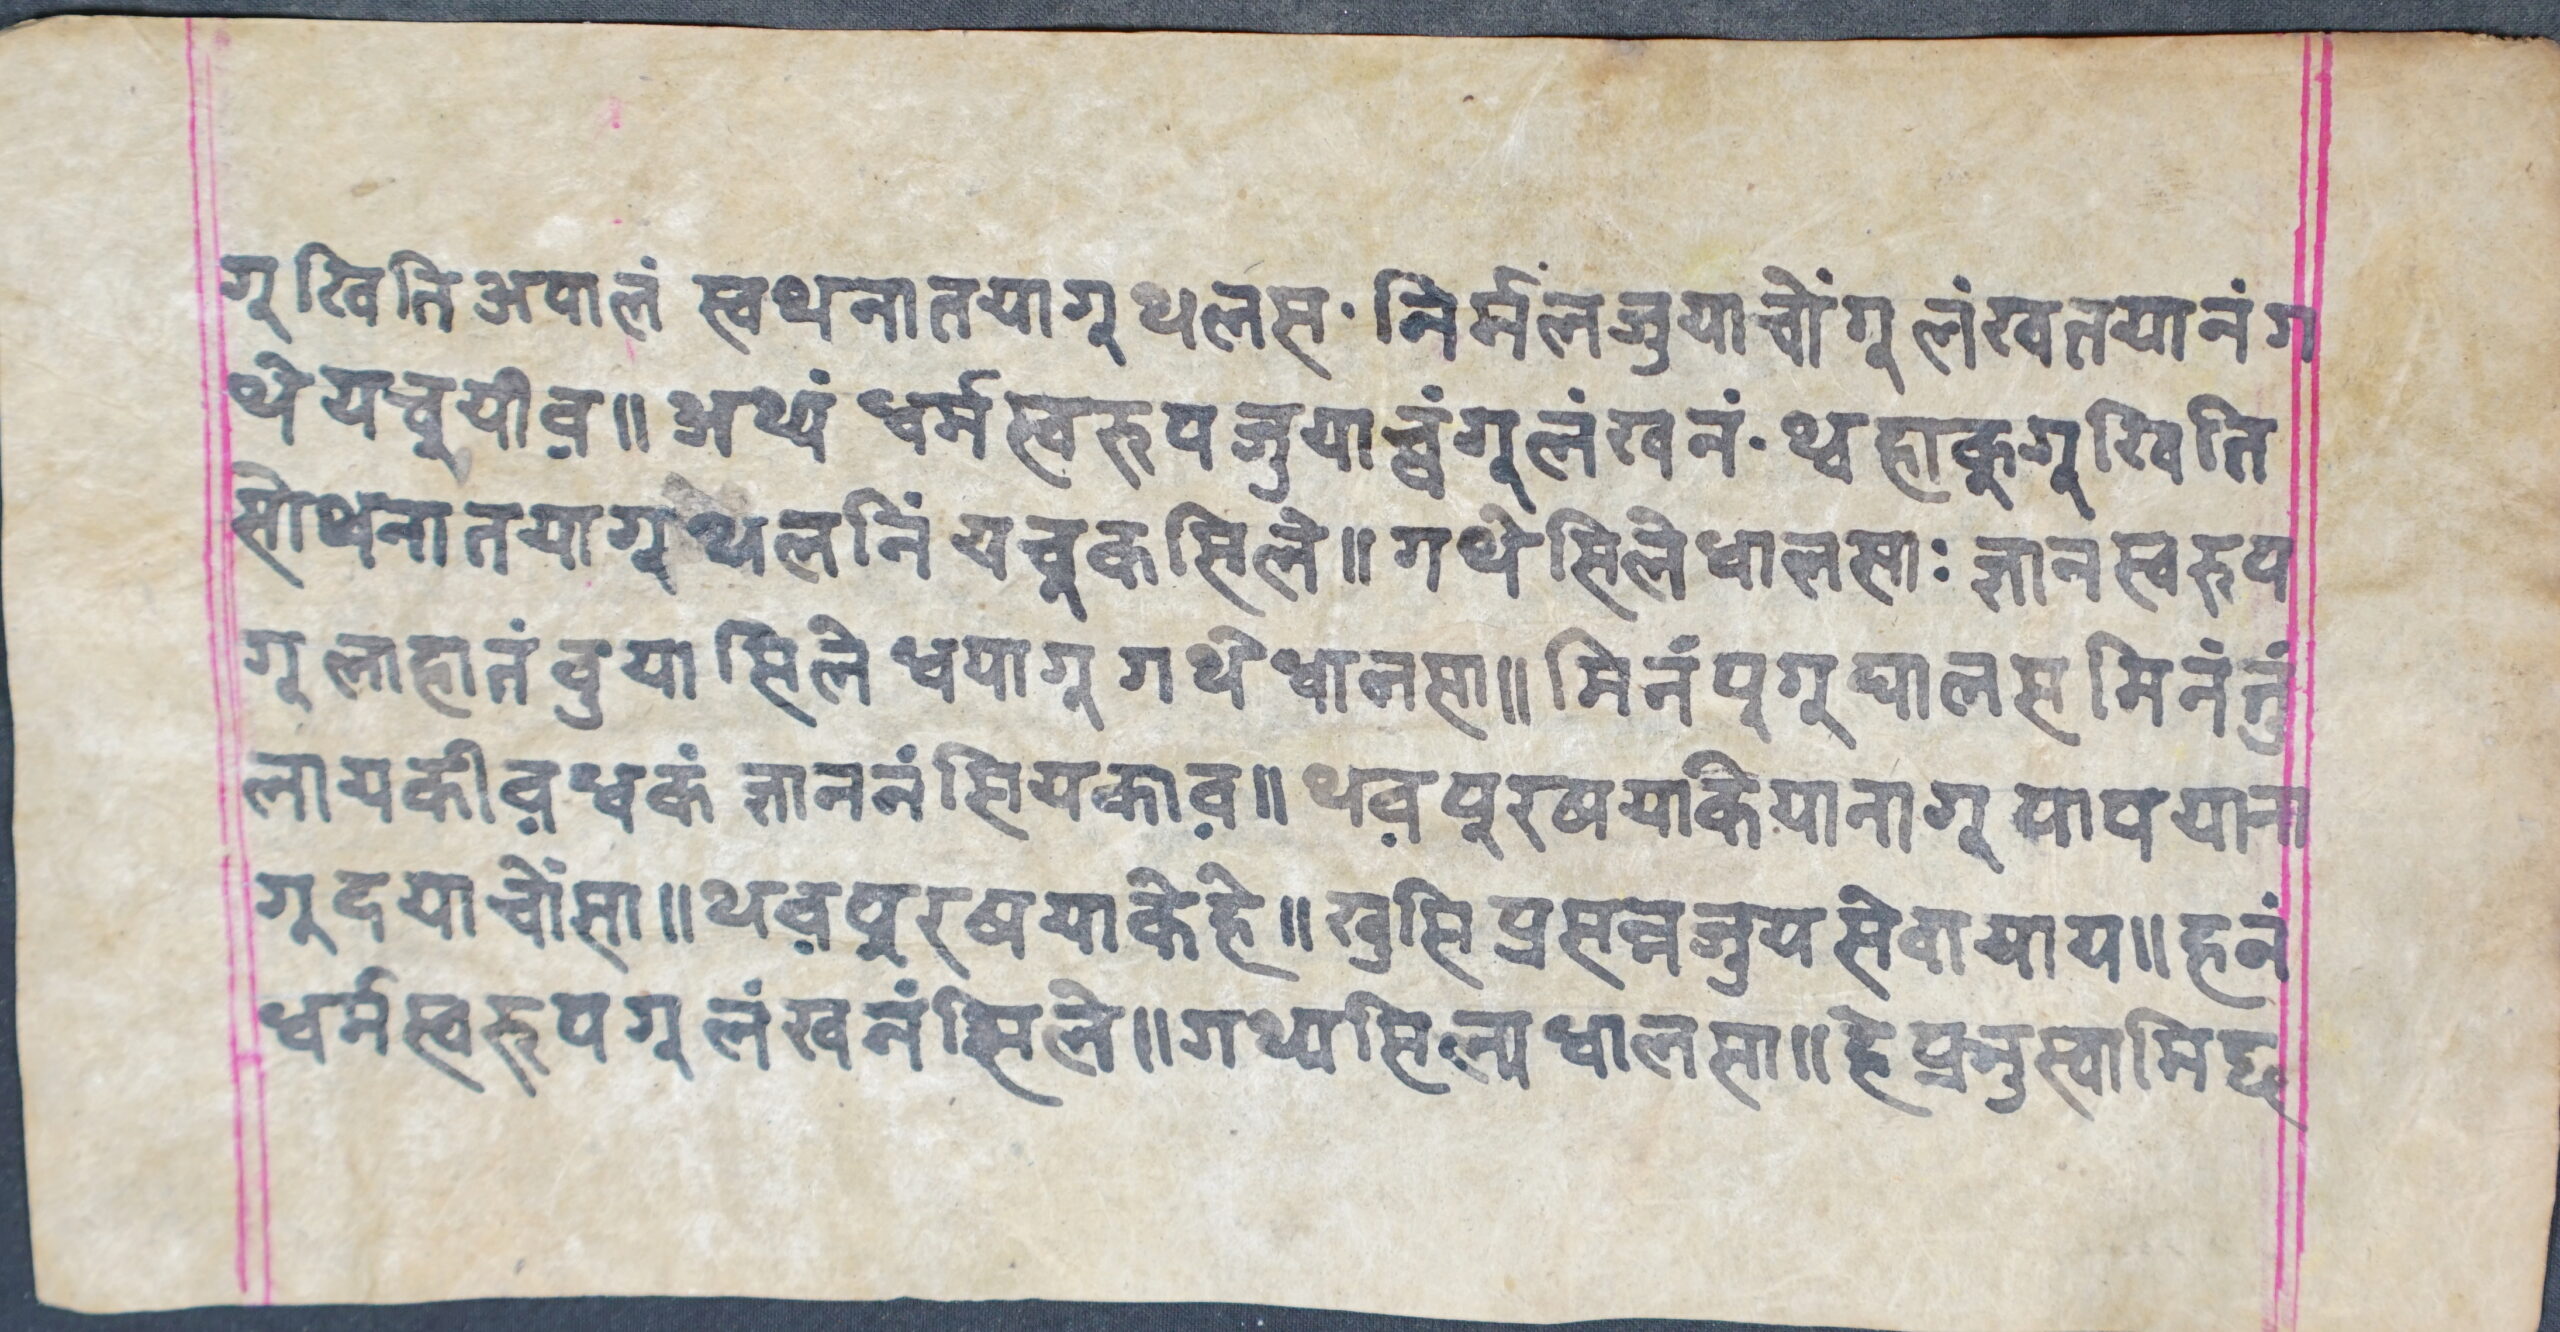 गू खिति अपालं स्वथनातयागू थलस · निर्मलजुयाचोंगू लंखतयानं ग
थे यचुयीव़ ॥ अथ्यं धर्मस्वरूपजुयाच्वंगू लंखनं · थ्व हाकुगू खिति
सोथनातयागू थलनिं यचुक सिले ॥ गथे सिले धालसाः ज्ञानस्वरूप
गू लाहातं वुया सिले धयागू गथे धालसा ॥ मिनं पूगू घालस मिनं तुं
लायकीव़ थ्वकं ज्ञाननं सियकाव़ ॥ थव़ पुरषयाके यानागू पापयाना
गू दयाचोंसा ॥ थव़ पुरषयाके हे ॥ खुसि प्रसन्नजुय सेवायाय ॥ हनं
धर्मस्वरूपगू लंखनं सिले ॥ गथ्य सिल्य धालसा ॥ हे प्रभु स्वामि छ